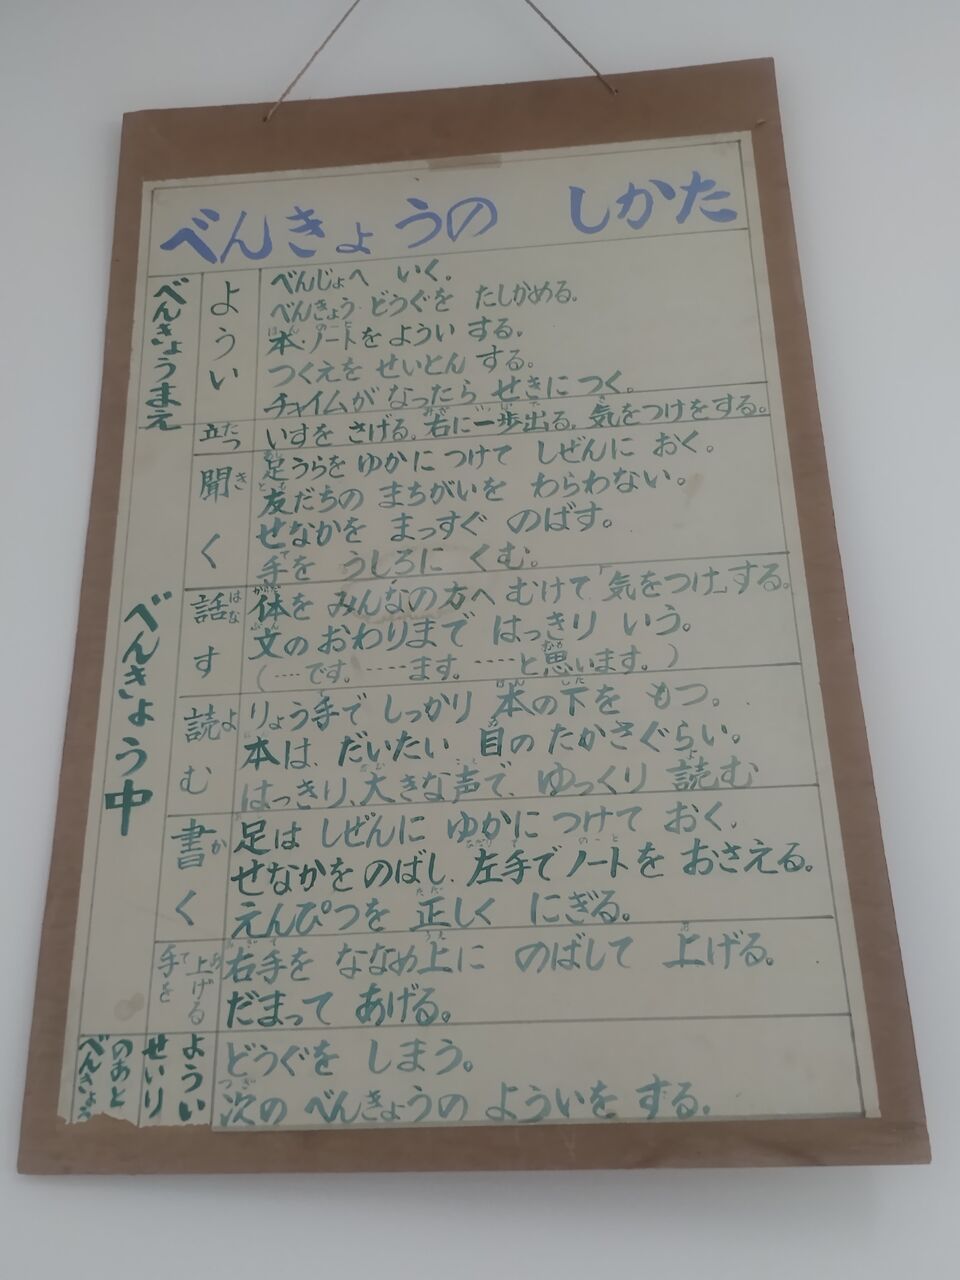 べんきょうの しかた
べんきょうまえ
ようい
べんじょへ いく。
べんきょう・どうぐを たしかめる。
本・ノートを ようい する。
つくえを せいとん する。
チャイムが なったら せきに つく。
立つ
いすを さげる。右に一歩出る。気をつけをする。
べんきょう中
聞く
足うらを ゆかに つけて しぜんに おく。
友だちの まちがいを わらわない。
せなかを まっすぐ のばす。
手を うしろに くむ。
話す
体を みんなの方へ むけて「気をつけ」する。
文の おわりまで はっきり いう。
(‥‥です。‥‥ます。‥‥と思います。)
読む
りょう手で しっかり 本の下を もつ。
本は、だいたい 目の たかさぐらい。
はっきり、大きな声で、ゆっくり 読む
書く
足は しぜんに ゆかに つけて おく。
せなかを のばし、左手で ノートを おさえる。
えんぴつを 正しく にぎる。
手を上げる
右手を ななめ上に のばして 上げる。
だまって あげる。
べんきょう
のあと
せいり
ようい
どうぐを しまう。
次の べんきょうの よういを する。